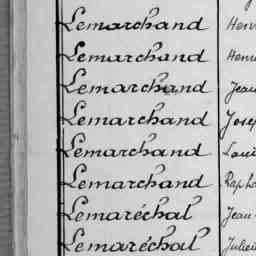 Lemarchand Henri
Lemarchand Henri
Lemarchand Jean
Lemarchand Josep
Lemarchand Loui
Lemarchand Rapha
Lemaréchal Jean
Lemaréchal Julien